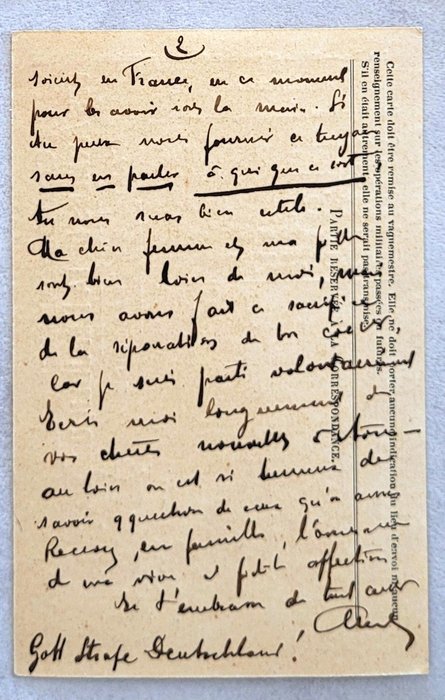 2
soient en France, en ce moment
pour les avoir sous la main. Si
tu peux nous fournir ce tuyau
sans en parler à qui que ce soit
tu nous seras bien utile.
Ma chère femme et ma
sont bien loin de moi, mais
nous avons fait ce sacrifice
de la séparation de bon cœur
car je suis parti volontairement
Ecris moi longuement de
vos chères nouvelles
au loin on est si heureux de
savoir question de ceux qu'on aime
Reçois, en famille, l'assurance
de ma vive et fidèle affection
Je t'embrasse de tout cœur
Gott Strafe Deutschland!
Cette carte doit être remise au vaguemestre. Elle ne doit porter aucune indication du lieu d'envoi ni aucun
renseignement sur les opérations militaires passées ou futures.
S'il en était autrement, elle ne serait pas transmise.
PARTIE RÉSERVÉE À LA CORRESPONDANCE.